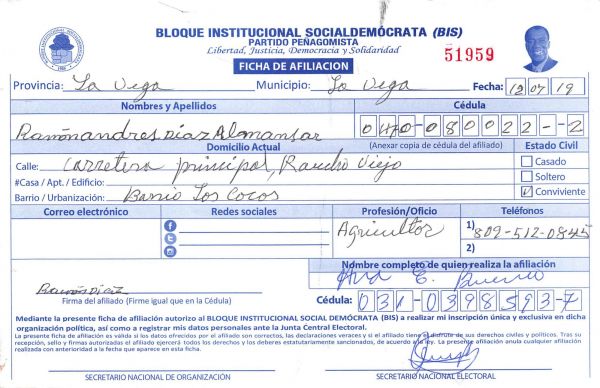 BLOQUE INSTITUCIONAL SOCIALDEMÓCRATA (BIS)
PARTIDO PEÑAGOMISTA
Libertad, Justicia, Democracia y Solidaridad
FICHA DE AFILIACION
51959
Provincia: La Vega Municipio: La Vega Fecha: 12 07 19
Nombres y Apellidos Cédula
Ramón andres Diaz Almansar 047-080022--2
Domicilio Actual (Anexar copia de cédula del afiliado) Estado Civil
Calle: Carretera principal, Rancho Viejo Casado
#Casa / Apt. / Edificio: Soltero
Barrio / Urbanización: Barrio Los Cocos Conviviente
Correo electrónico Redes sociales Profesión/Oficio Teléfonos
Agricultor 1) 809-512-0845
2)
Nombre completo de quien realiza la afiliación
Ramón Diaz
Firma del afiliado (Firme igual que en la Cédula) Cédula: 031-0398593-7
Mediante la presente ficha de afiliación autorizo al BLOQUE INSTITUCIONAL SOCIAL DEMÓCRATA (BIS) a realizar mi inscripción única y exclusiva en dicha
organización política, así como a registrar mis datos personales ante la Junta Central Electoral.
La presente ficha de afiliación es válida si los datos ofrecidos por el afiliado son correctos, las declaraciones veraces y si el afiliado tiene el disfrute de sus derechos civiles y políticos. Tras su
recepción, sello y firmas autorizadas el afiliado ejercerá todos los derechos y los deberes estatutariamente sancionados, de acuerdo a la ley. La presente afiliación anula cualquier afiliación
realizada con anterioridad a la fecha que aparece en esta ficha.
SECRETARIO NACIONAL DE ORGANIZACIÓN SECRETARIO NACIONAL ELECTORAL